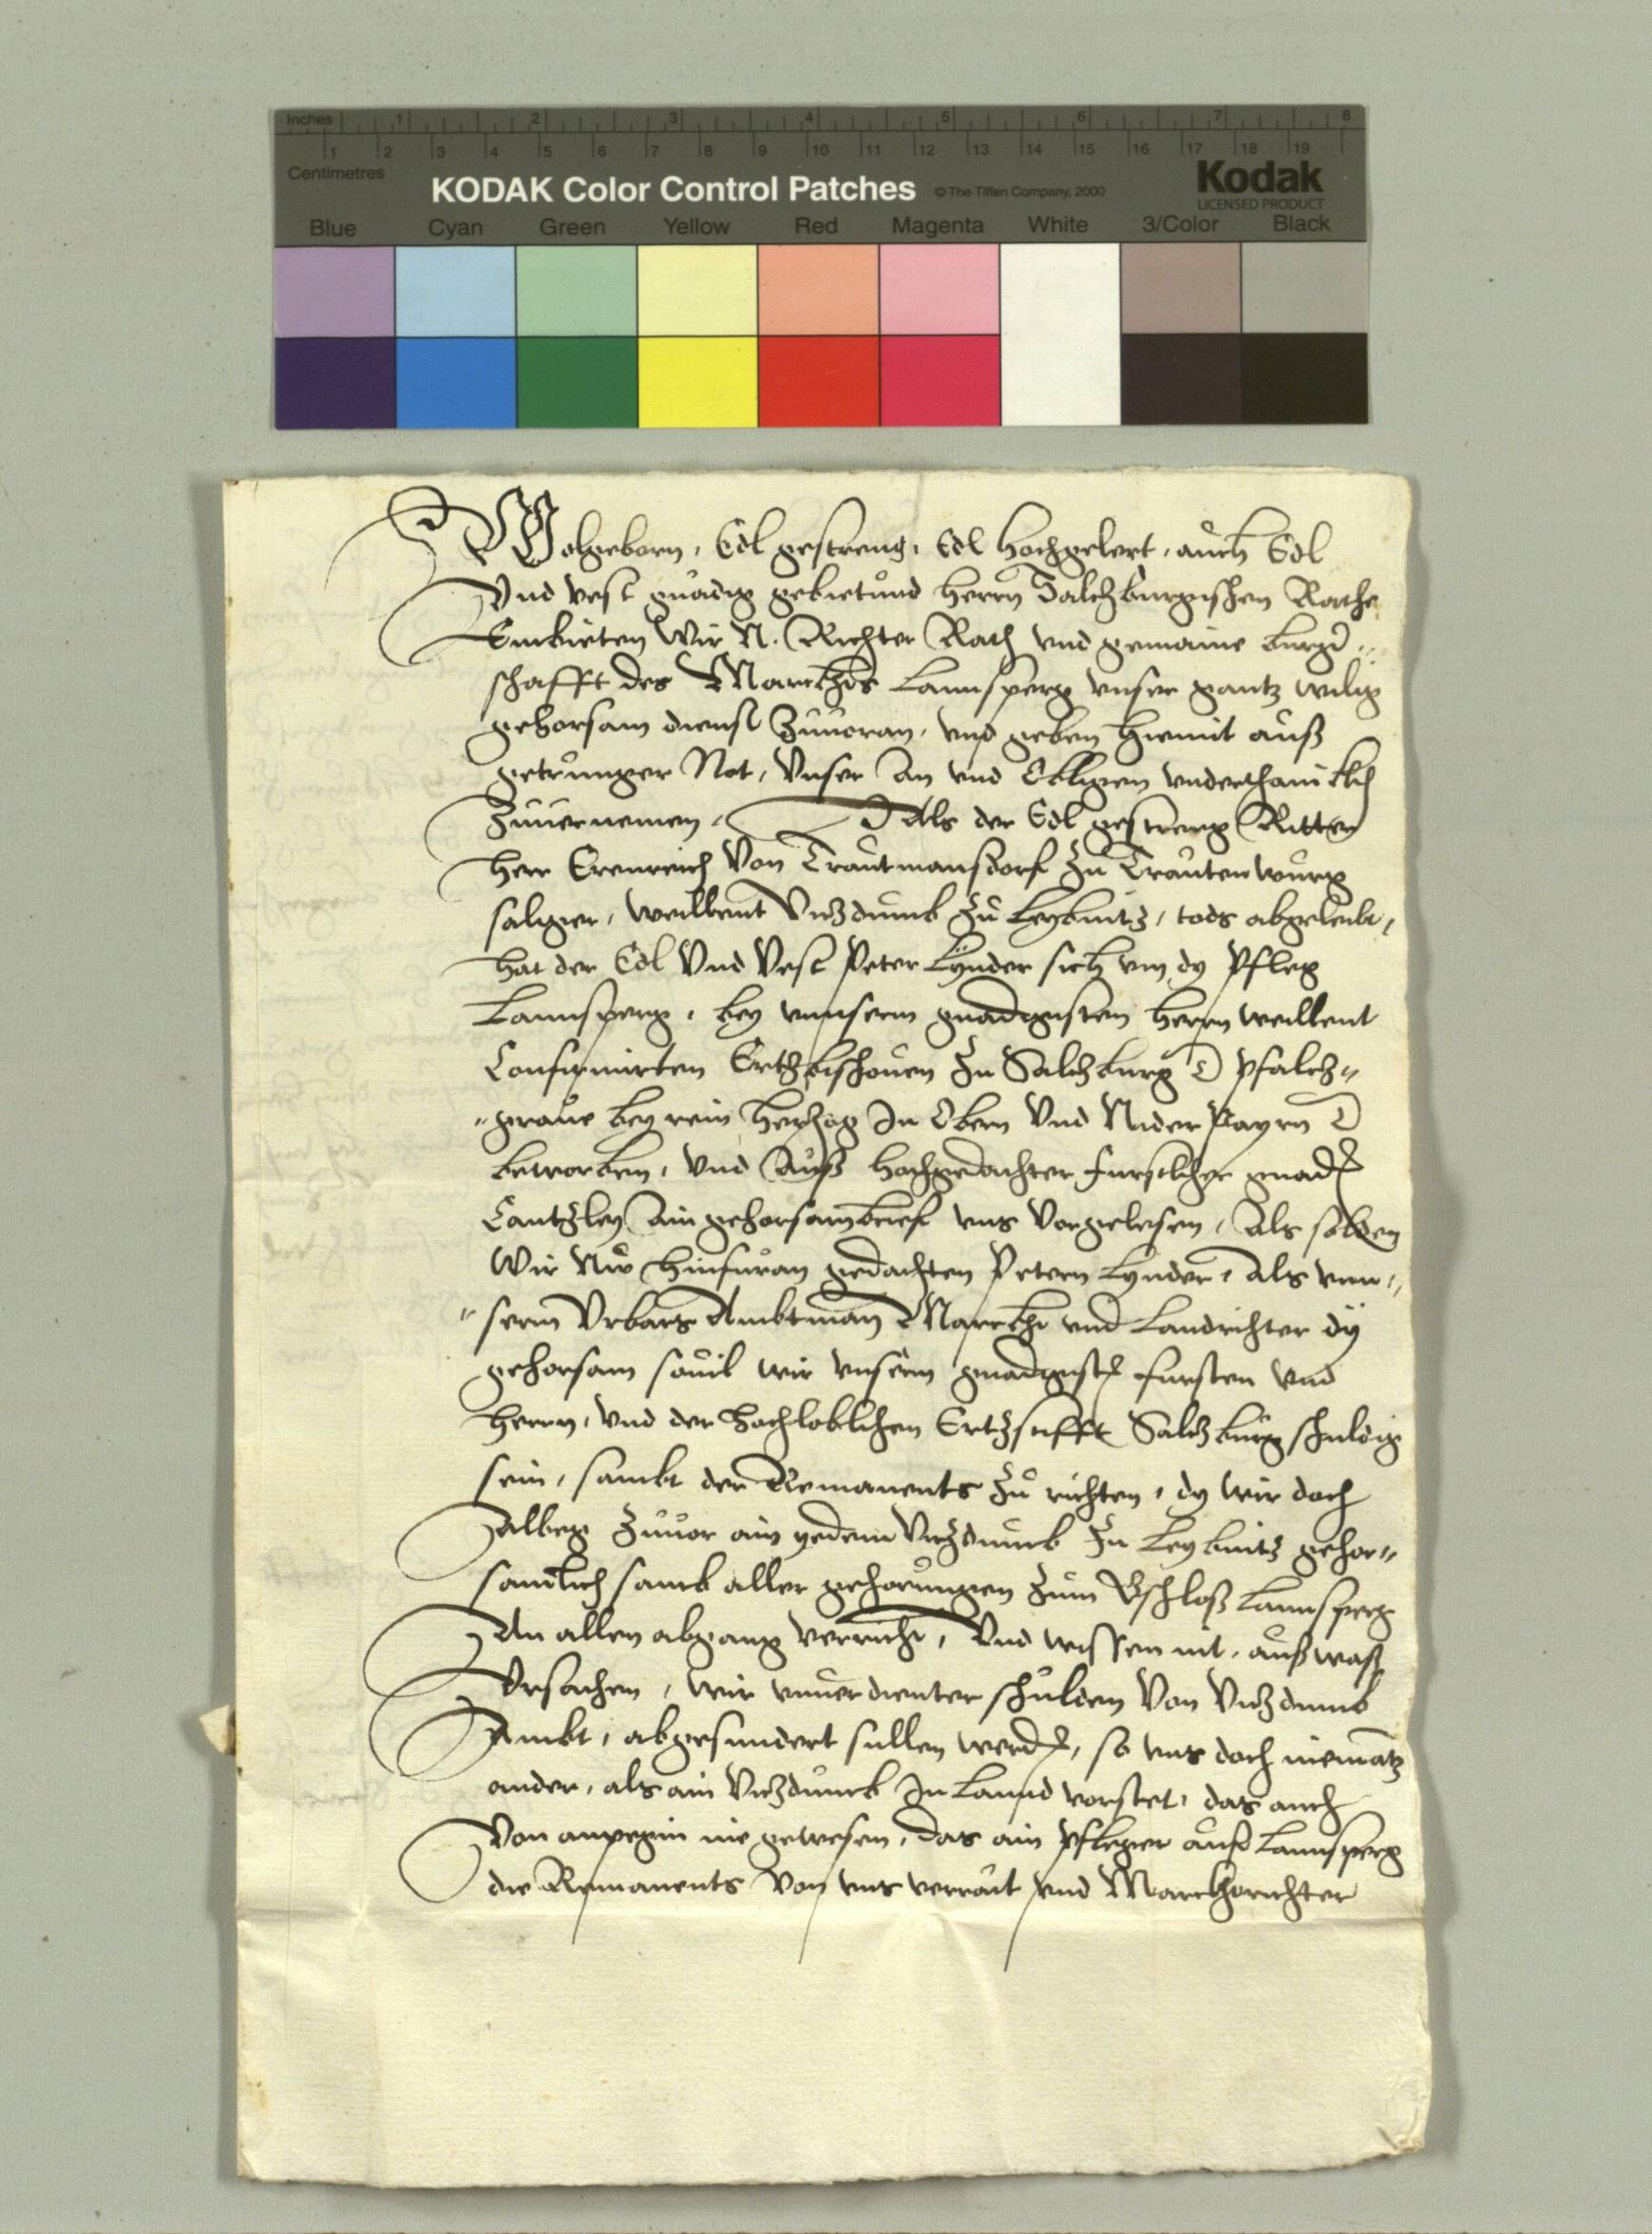 Inches 1 2 3 4 5 6 7 8
1 2 3 4 5 6 7 8 9 10 11 12 13 14 15 16 17 18 19
Centimetres
KODAK Color Control Patches © The Tiffen Company, 2000 Kodak
LICENSED PRODUCT
Blue Cyan Green Yellow Red Magenta White 3/Color Black
Wolgeborn, Edl gestreng, Edl hochgelert, auch Edl
Und vest gnadig gebietund herrn Saltzburgischen Rathe
Embieten Wir N. Richter Rath vnd gemaine burger
schafft des Marckhts Lannsperg vnser gantz willig
gehorsam dienst Zuuoran, vnd geben hiemit auß
getrunger Not, Vnser An vnd Obligen vnderthanicklich
Zuuernemen, Als der Edl gestreng Ritter
herr Erenreich Von Trautmansdorf Zu Trautenwurg
saliger, weillent Vitzdumb Zu Leybnitz, tods abgeleibt,
hat der Edl Vnd Vest Peter Lynder sich vm dy Pfleg
Lannsperg, bey vnnserm gnadigisten herrn weillent
Confirmirten Ertzbischouen Zu Saltzburg Pfaltz„
„graue bey rein hertzog In Obern Vnd Nider Bayrn
beworben, Vnd Auß hochgedachter furstlicher gnaden
Cantzley Ain gehorsambrief vns Vorgelesen, Als sollen
Wir Nw hinfuran gedachten Petern Lynder, Als vnn„
„serm Vrbars Ambtman Marckht vnd Landrichter dy
gehorsam souil wir vnserm gnadigisten fursten vnd
herrn, Vnd der hochloblichen Ertzstifft Saltzburg schuldig
sein, sambt der Remanents Zu richten, dy wir doch
Albeg Zuuor ain yedem Vitzdumb Zu Leybnitz gehor„
samlich samb aller gehorungen Zum Gschloß Lannsperg
An allen abgang verricht, Vnd wissen nit, auß waß
Vrsachen, wir vnuerdienter schulden Von Vitzdumb
Ambt, abgesundert sullen werden, so vns doch niematz
ander, als ain Vitzdumb In Lannd vorstet, das auch
Von anpegin nie gewesen, Das ain Pfleger auf Lannsperg
die Remanents Von vns verrait vnd Marckhtrichter